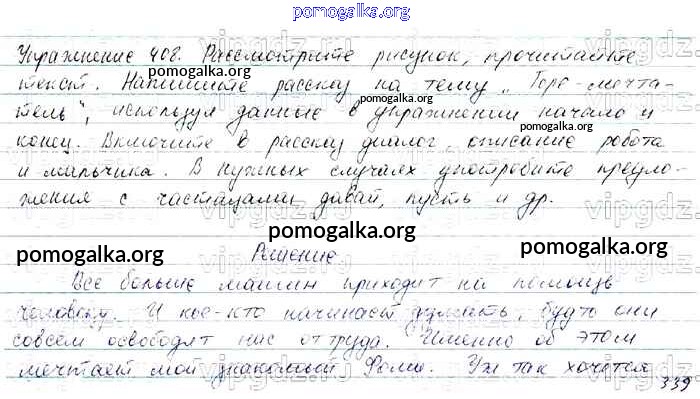 pomogalka.org
Упражнение 408. Рассмотрите рисунок, прочитайте
текст. Напишите рассказ на тему „Горе-мечта-
pomogalka.org pomogalka.org
тель", используя данные в упражнении начало и
pomogalka.org
конец. Включите в рассказ диалог, описание робота
и мальчика. В нужных случаях употребите предло-
pomogalka.org pomogalka.org
жения с частицами давай, пусть и др.
pomogalka.org pomogalka.org pomogalka.org
Решение
Все больше машин приходит на помощь
человеку. И кое-кто начинает думать, будто они
совсем освободят нас от труда. Именно об этом
мечтает мой знакомый Фома. Уж так хочется
339